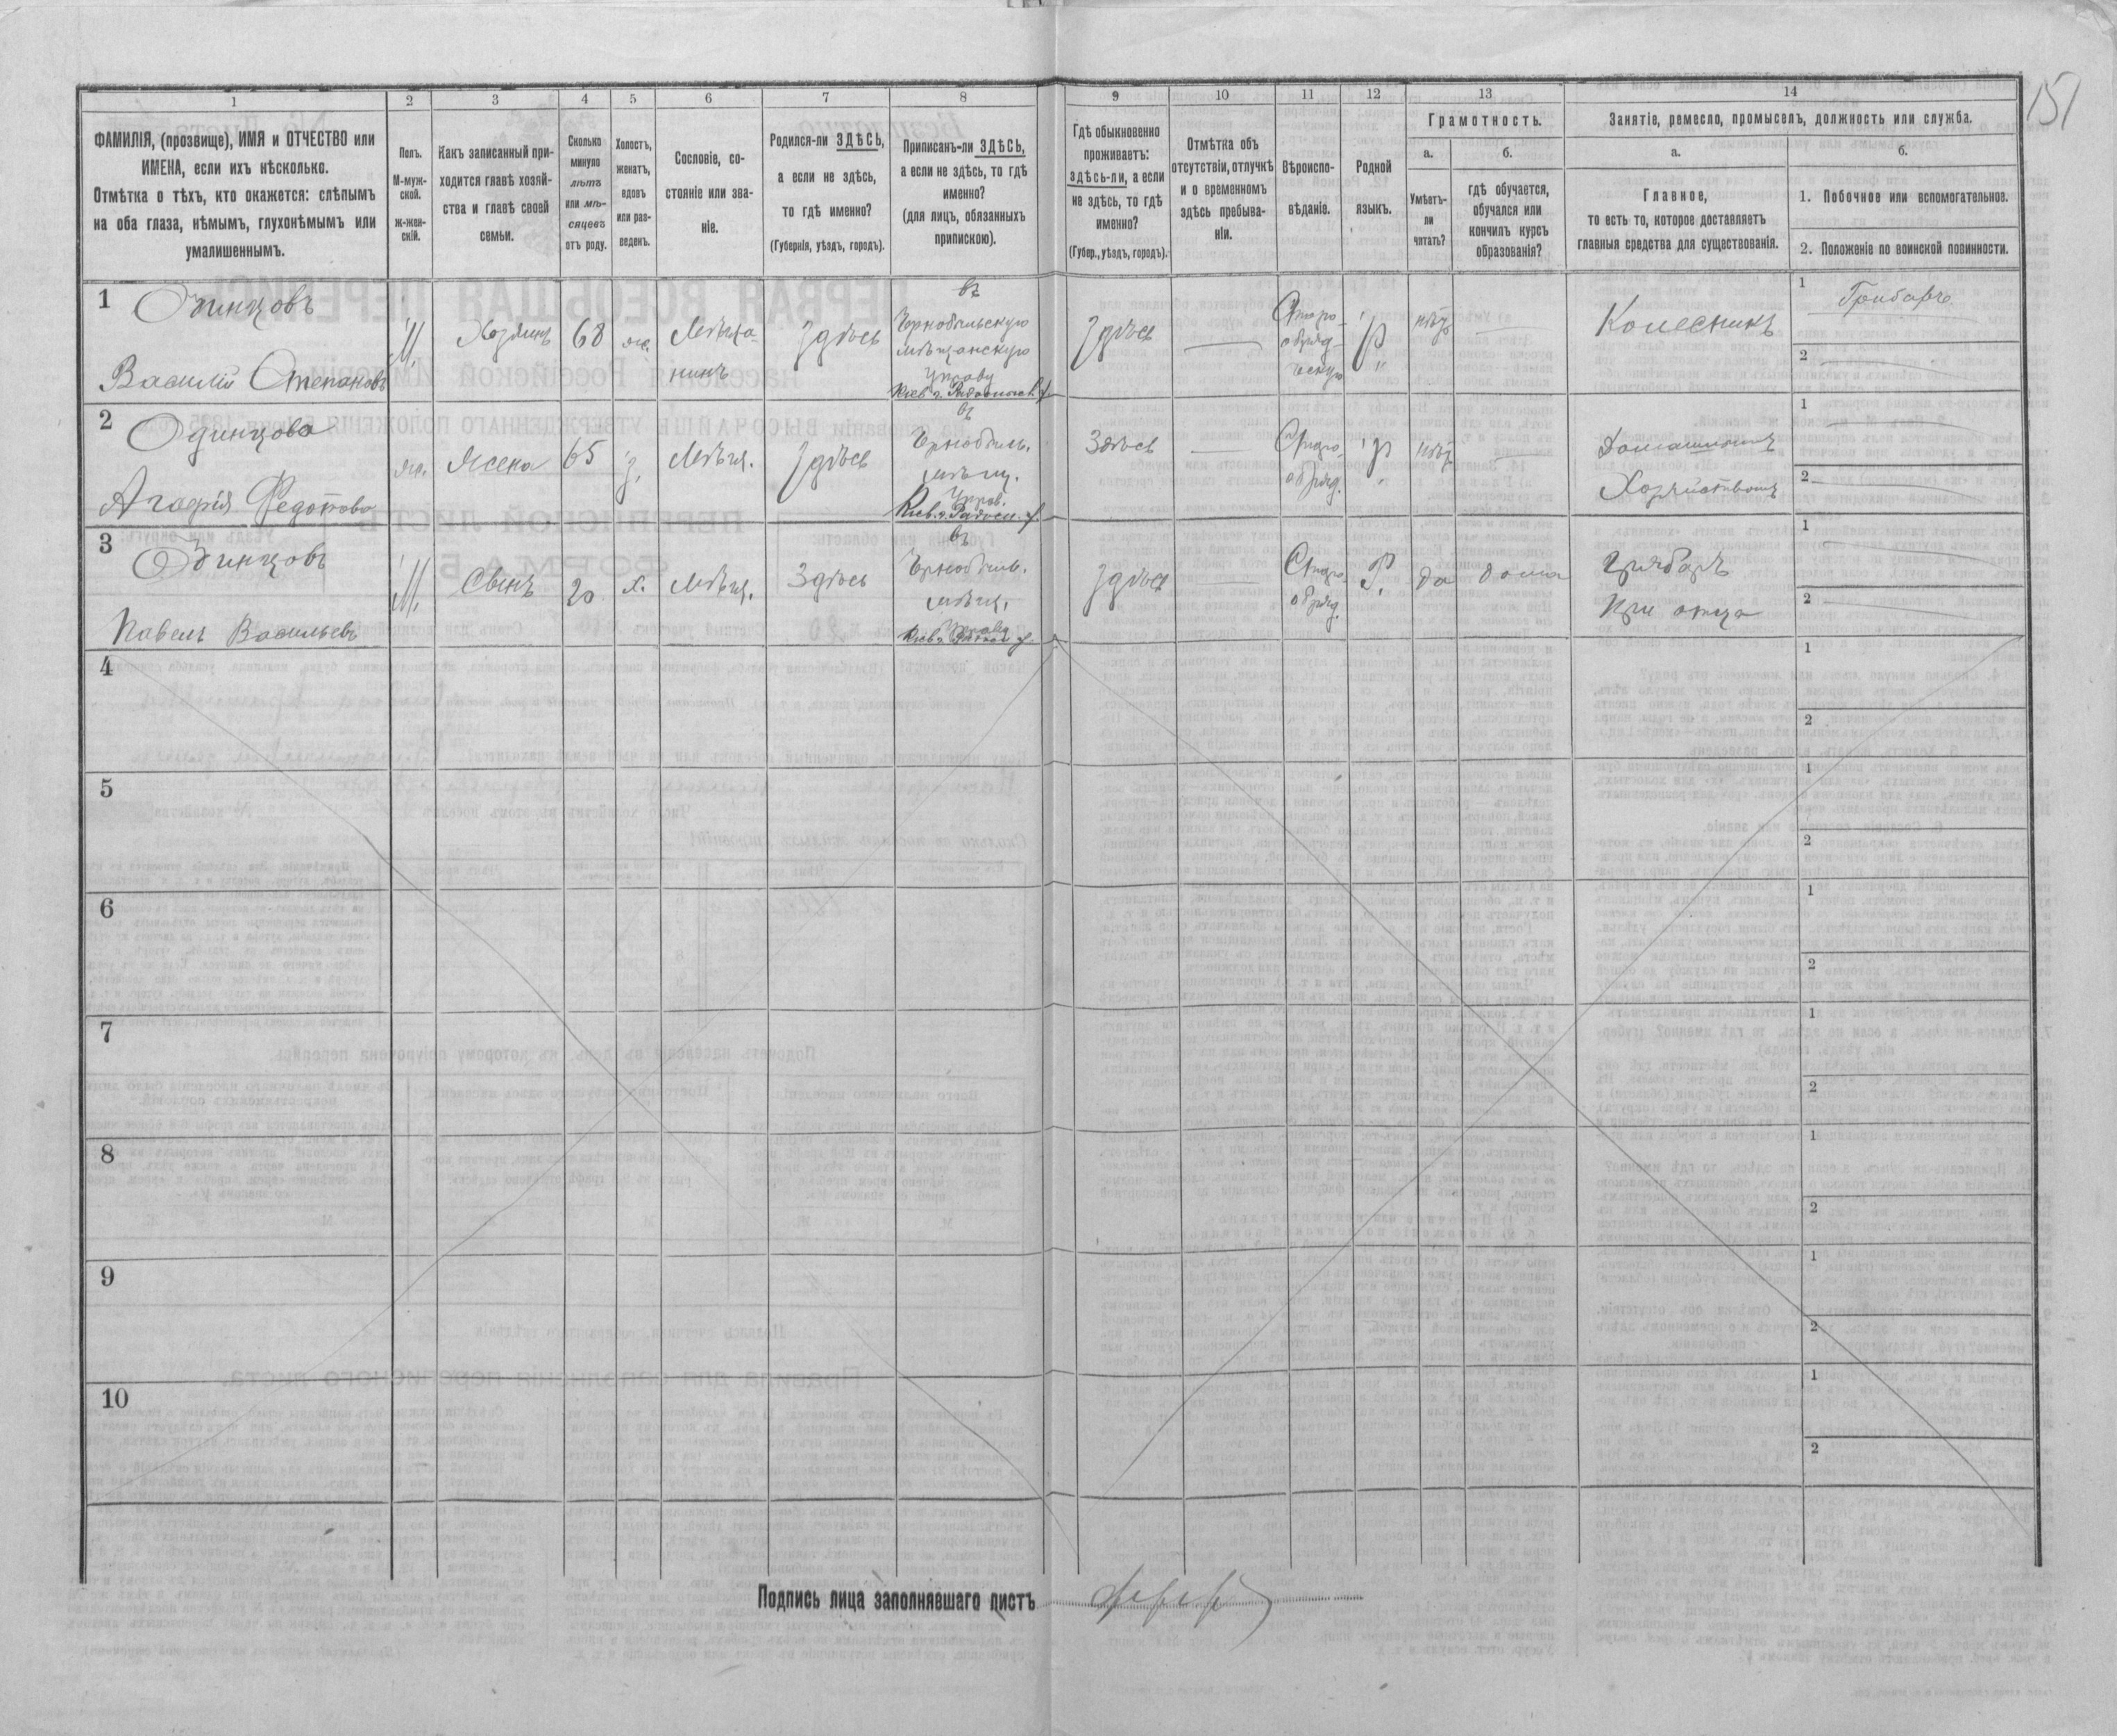 151
1
2
3
4
5
6
7
8
9
10
11
12
13
14
ФАМИЛІЯ, (прозвище), ИМЯ и ОТЧЕСТВО или
ИМЕНА, если ихъ нѣсколько.
Отмѣтка о тѣхъ, кто окажется: слѣпымъ
на оба глаза, нѣмымъ, глухонѣмымъ или
умалишеннымъ.
Полъ.
М-муж-
ской.
ж-жен-
скій.
Какъ записанный при-
ходится главѣ хозяй-
ства и главѣ своей
семьи.
Сколько
минуло
лѣтъ
или мѣ-
сяцевъ
отъ роду.
Холостъ,
женатъ,
вдовъ
или раз-
веденъ.
Сословіе, со-
стояніе или зва-
ніе.
Родился-ли ЗДѢСЬ,
а если не здѣсь,
то гдѣ именно?
(Губернія, уѣздъ, городъ).
Приписанъ-ли ЗДѢСЬ,
а если не здѣсь, то гдѣ
именно?
(для лицъ, обязанныхъ
припискою).
Гдѣ обыкновенно
проживаетъ:
здѣсь-ли, а если
не здѣсь, то гдѣ
именно?
(Губер., уѣздъ, городъ).
Отмѣтка объ
отсутствіи, отлучкѣ
и о временномъ
здѣсь пребыва-
ніи.
Вѣроиспо-
вѣданіе.
Родной
языкъ.
Грамотность.
а.
Умѣетъ-
ли
читать?
б.
гдѣ обучается,
обучался или
кончилъ курсъ
образованія?
Занятіе, ремесло, промыселъ, должность или служба.
а.
Главное,
то есть то, которое доставляетъ
главныя средства для существованія.
б.
1. Побочное или вспомогательное.
2. Положеніе по воинской повинности.
1
Одинцовъ
Василій Степановъ
М.
Хозяинъ
68
ж.
Мѣща-
нинъ
Здѣсь
въ
Чернобыльскую
мѣщанскую
Управу
Кіев. г. Радомысл. у.
Здѣсь
Старо-
обряд-
ческую
Р
нѣтъ
Колесникъ
1
Грибарь
2
2
Одинцова
Агафія Федотова
ж.
Жена
65
З.
Мѣщ.
Здѣсь
въ
Чернобыль.
мѣщ.
Управ.
Кіев. г. Радом. у.
Здѣсь
Старо-
обряд.
Р
нѣтъ
Домашнимъ
Хозяйствомъ
1
2
3
Одинцовъ
Павелъ Васильевъ
М.
Сынъ
20
х.
Мѣщ.
Здѣсь
въ
Чернобыль.
мѣщ.
Управа
Кіев. г. Радом. у.
Здѣсь
Старо-
обряд.
Р.
да
дома
Грибарь
При отца
1
2
4
1
2
5
1
2
6
1
2
7
1
2
8
1
2
9
1
2
10
1
2
Подпись лица заполнявшаго листъ